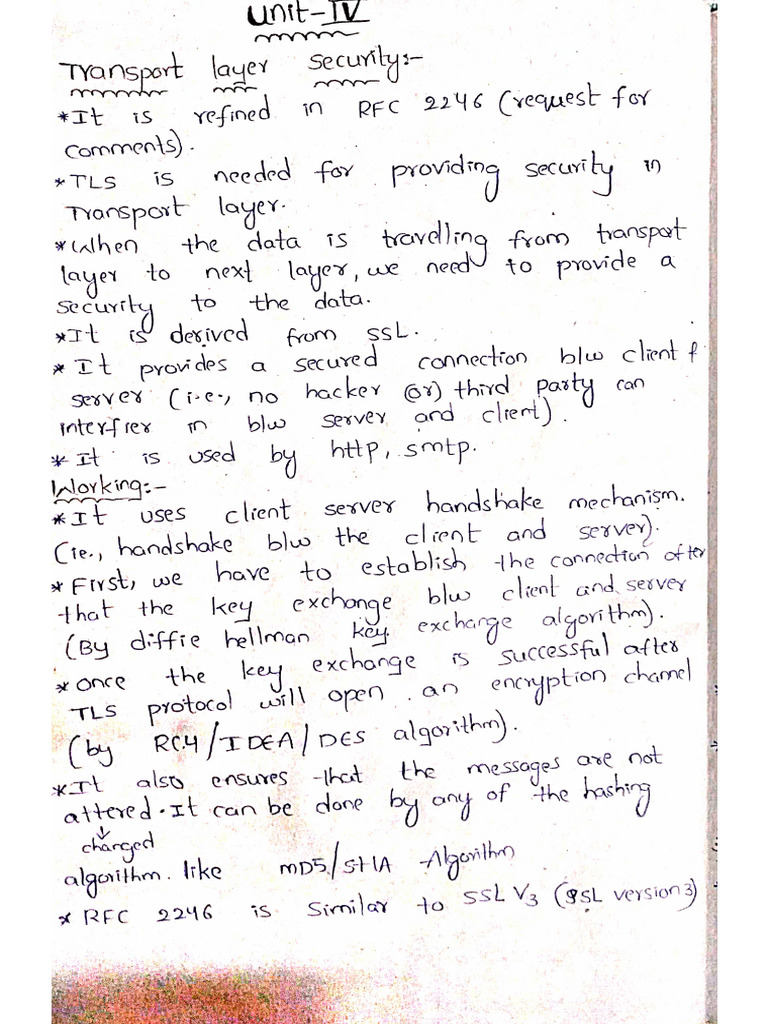 Unit-IV
Transport layer security:-
*It is refined in RFC 2246 (request for
comments).
*TLS is needed for providing security in
Transport layer.
*When the data is travelling from transport
layer to next layer, we need to provide a
security to the data.
*It is derived from SSL.
* It provides a secured connection b/w client &
server (i.e., no hacker (or) third party can
interfier in b/w server and client).
*It is used by http, smtp.
Working:-
*It uses client server handshake mechanism.
(ie., handshake b/w the client and server).
* First, we have to establish the connection after
that the key exchange b/w client and server
(By diffie hellman key exchange algorithm).
*Once the key exchange is successful after
TLS protocol will open an encryption channel
(by RC4/IDEA/DES algorithm).
*It also ensures that the messages are not
altered. It can be done by any of the hashing
changed
algorithm like MD5/SHA Algorithm
* RFC 2246 is similar to SSL V3 (SSL version3)